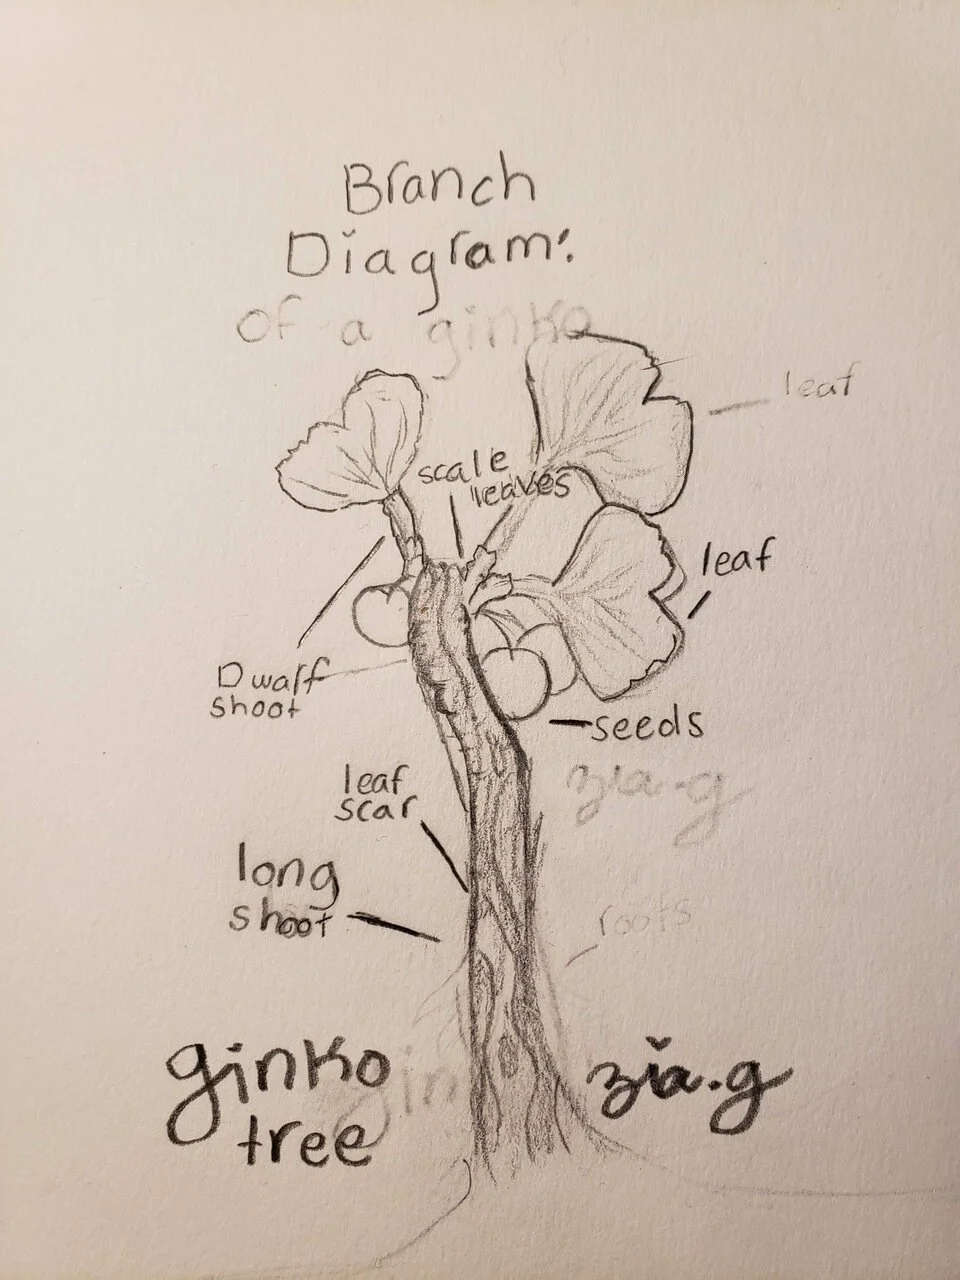 Branch
Diagram:
of a ginko
leaf
scale
leaves
leaf
Dwarf
shoot
seeds
zia.g
leaf
scar
long
shoot
roots
ginko
tree
gin
zia.g